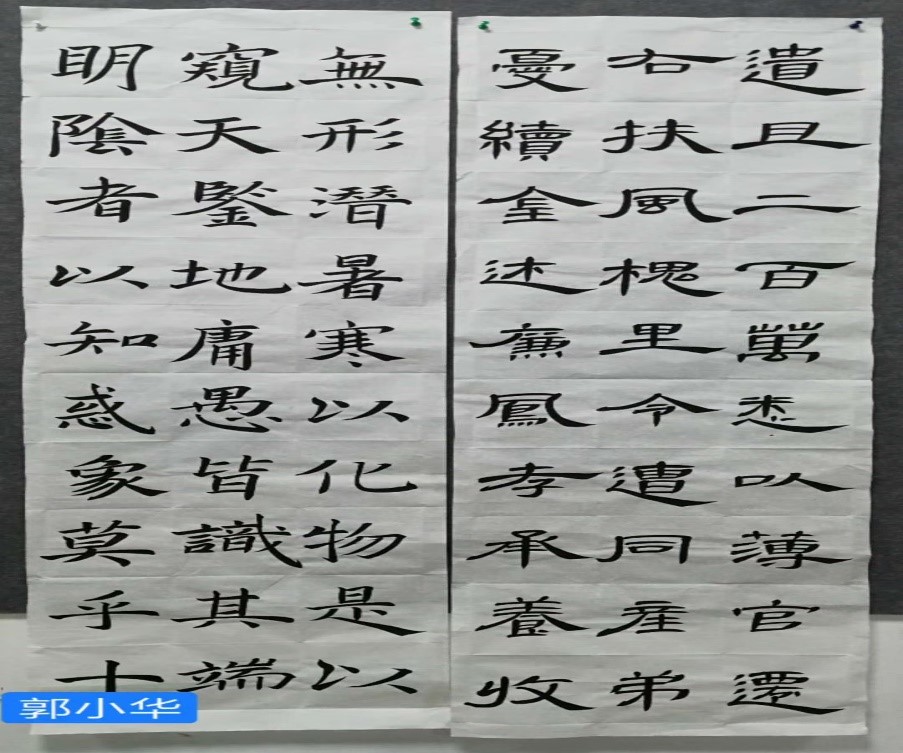 遺且二百萬悉以薄官還
右扶風槐里令遭同産弟
憂續全述廉鳳孝承養收
無形潛暑寒以化物是以
窺天鑒地庸愚皆識其端
明陰者以知惑象莫乎十
郭小华